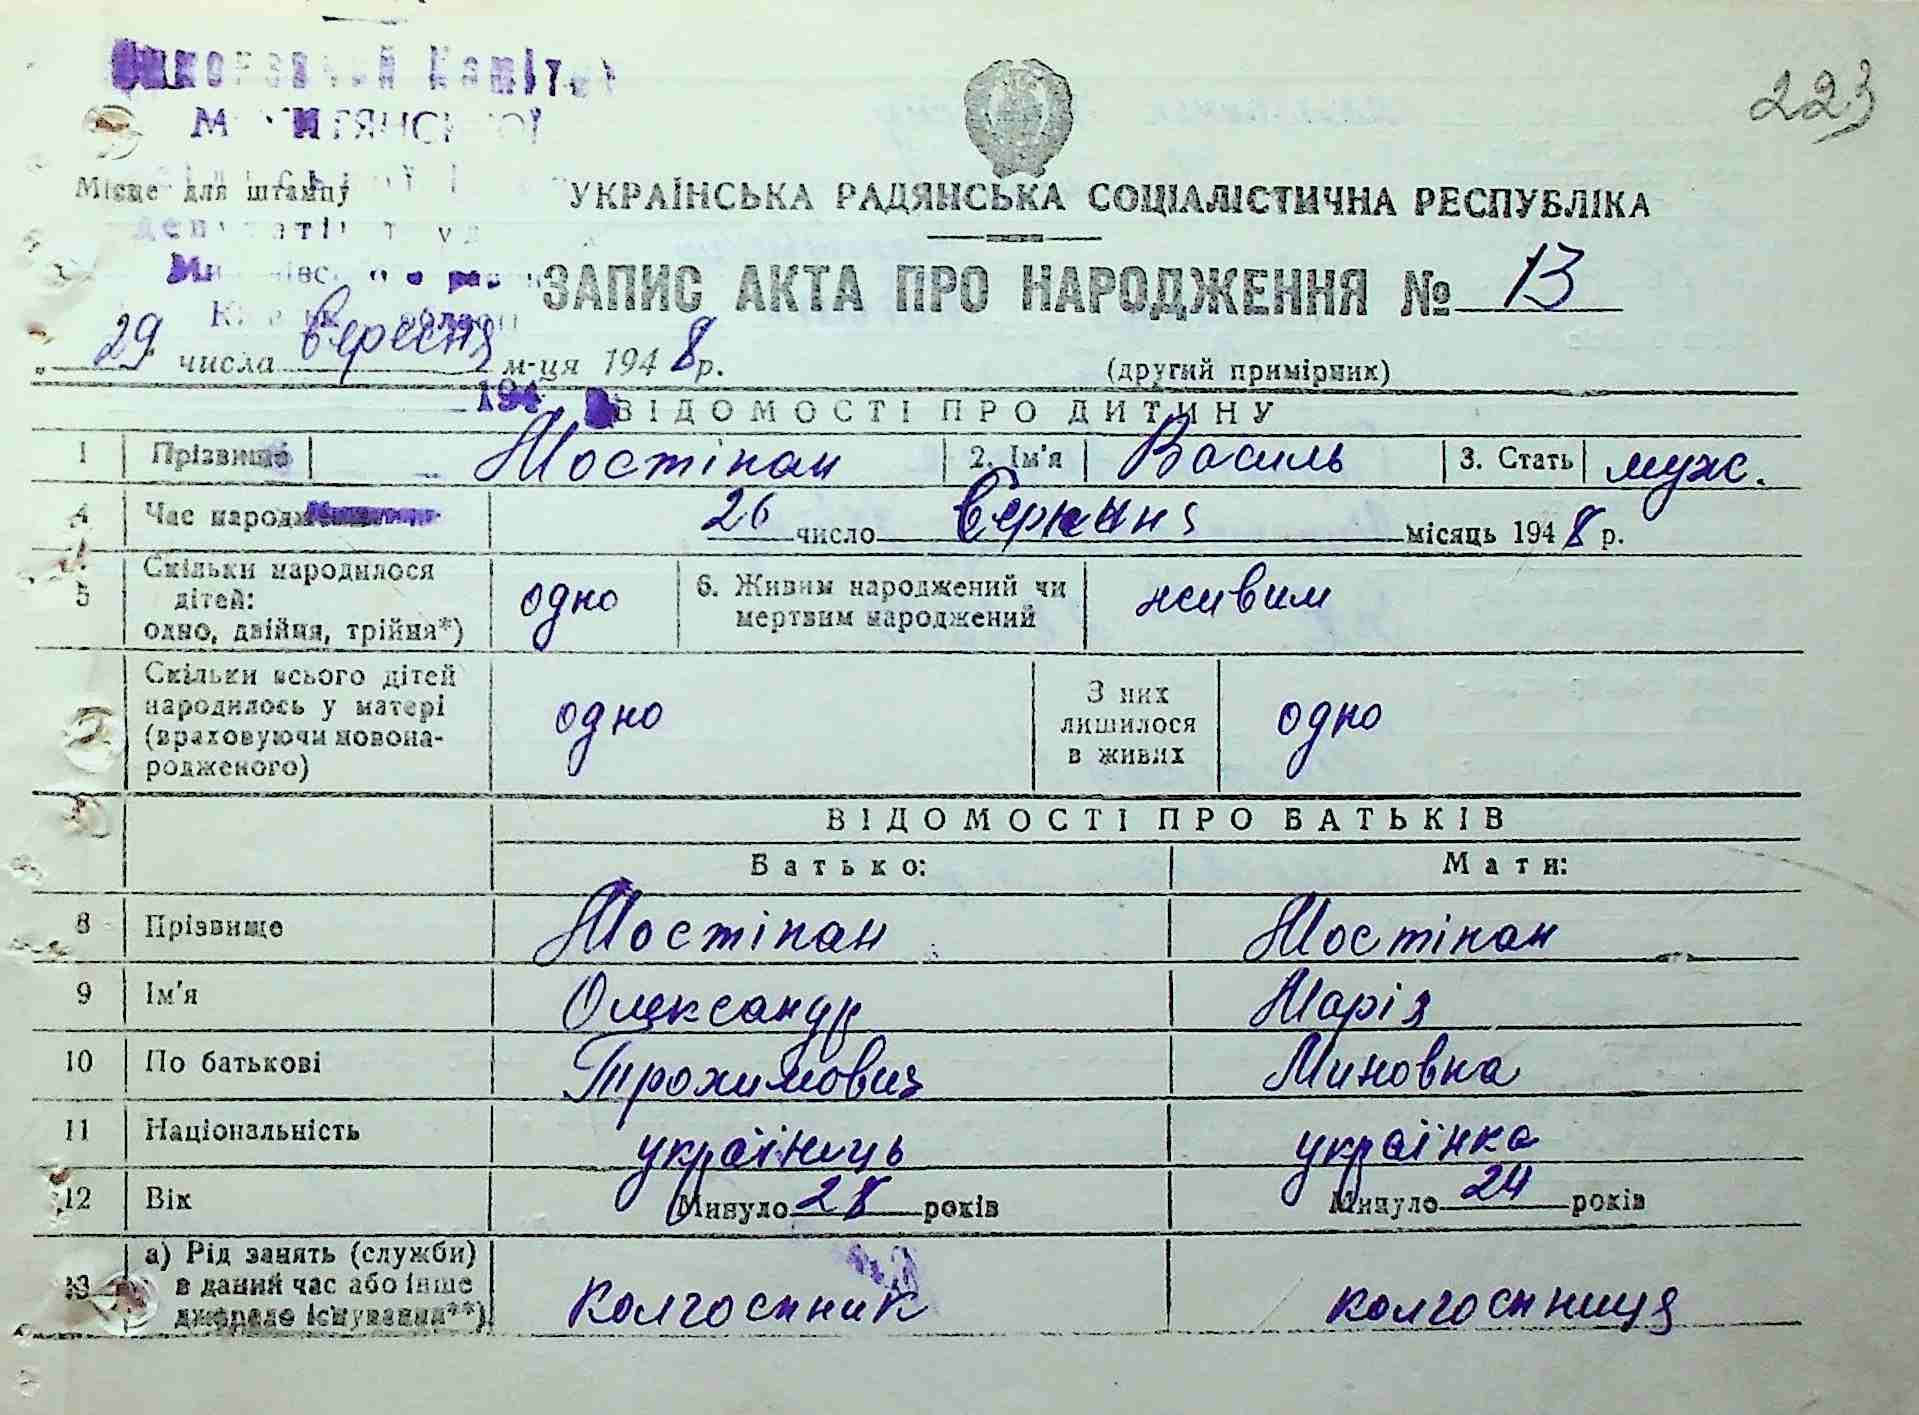 Комітет
223
Місце для штампу
УКРАЇНСЬКА РАДЯНСЬКА СОЦІАЛІСТИЧНА РЕСПУБЛІКА
ЗАПИС АКТА ПРО НАРОДЖЕННЯ № 13
„29 числа вересня м-ця 1948 р.
(другий примірник)
194
ВІДОМОСТІ ПРО ДИТИНУ
1 Прізвище Мостіпан 2. Ім'я Василь 3. Стать муж.
4 Час 26 число Серпня місяць 1948 р.
5 Скільки народилося дітей: одно, двійня, трійня*) одно 6. Живим народжений чи мертвим народжений живим
Скільки всього дітей народилось у матері (враховуючи новонародженого) одно З них лишилося в живих одно
ВІДОМОСТІ ПРО БАТЬКІВ
Батько: Мати:
8 Прізвище Мостіпан Мостіпан
9 Ім'я Олександр Марія
10 По батькові Трохимович Миновна
11 Національність українець українка
12 Вік Минуло 28 років Минуло 24 років
13 а) Рід занять (служби) в даний час або інше джерело існування**) колгоспник колгоспниця